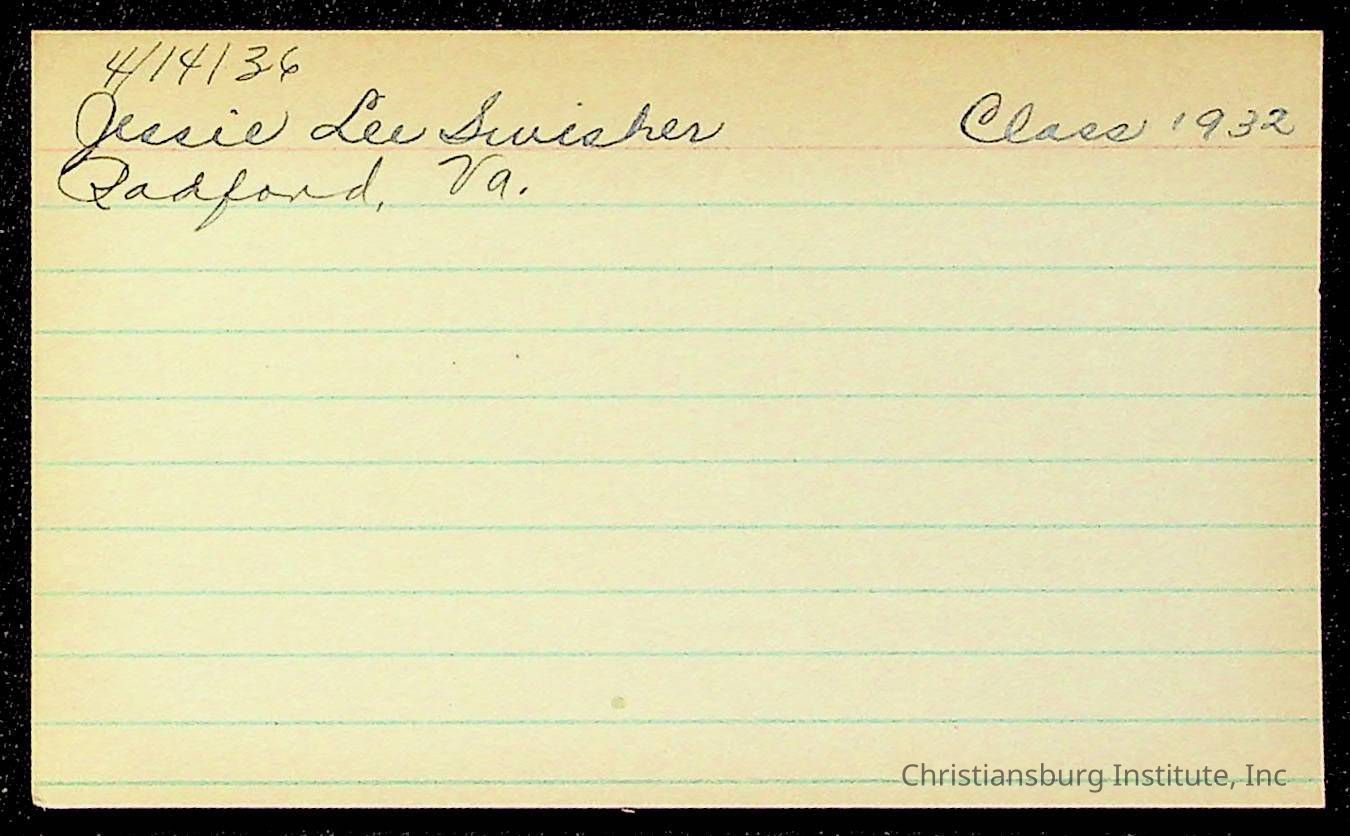 4/14/36
Jessie Lee Swisher Class 1932
Radford, Va.
Christiansburg Institute, Inc